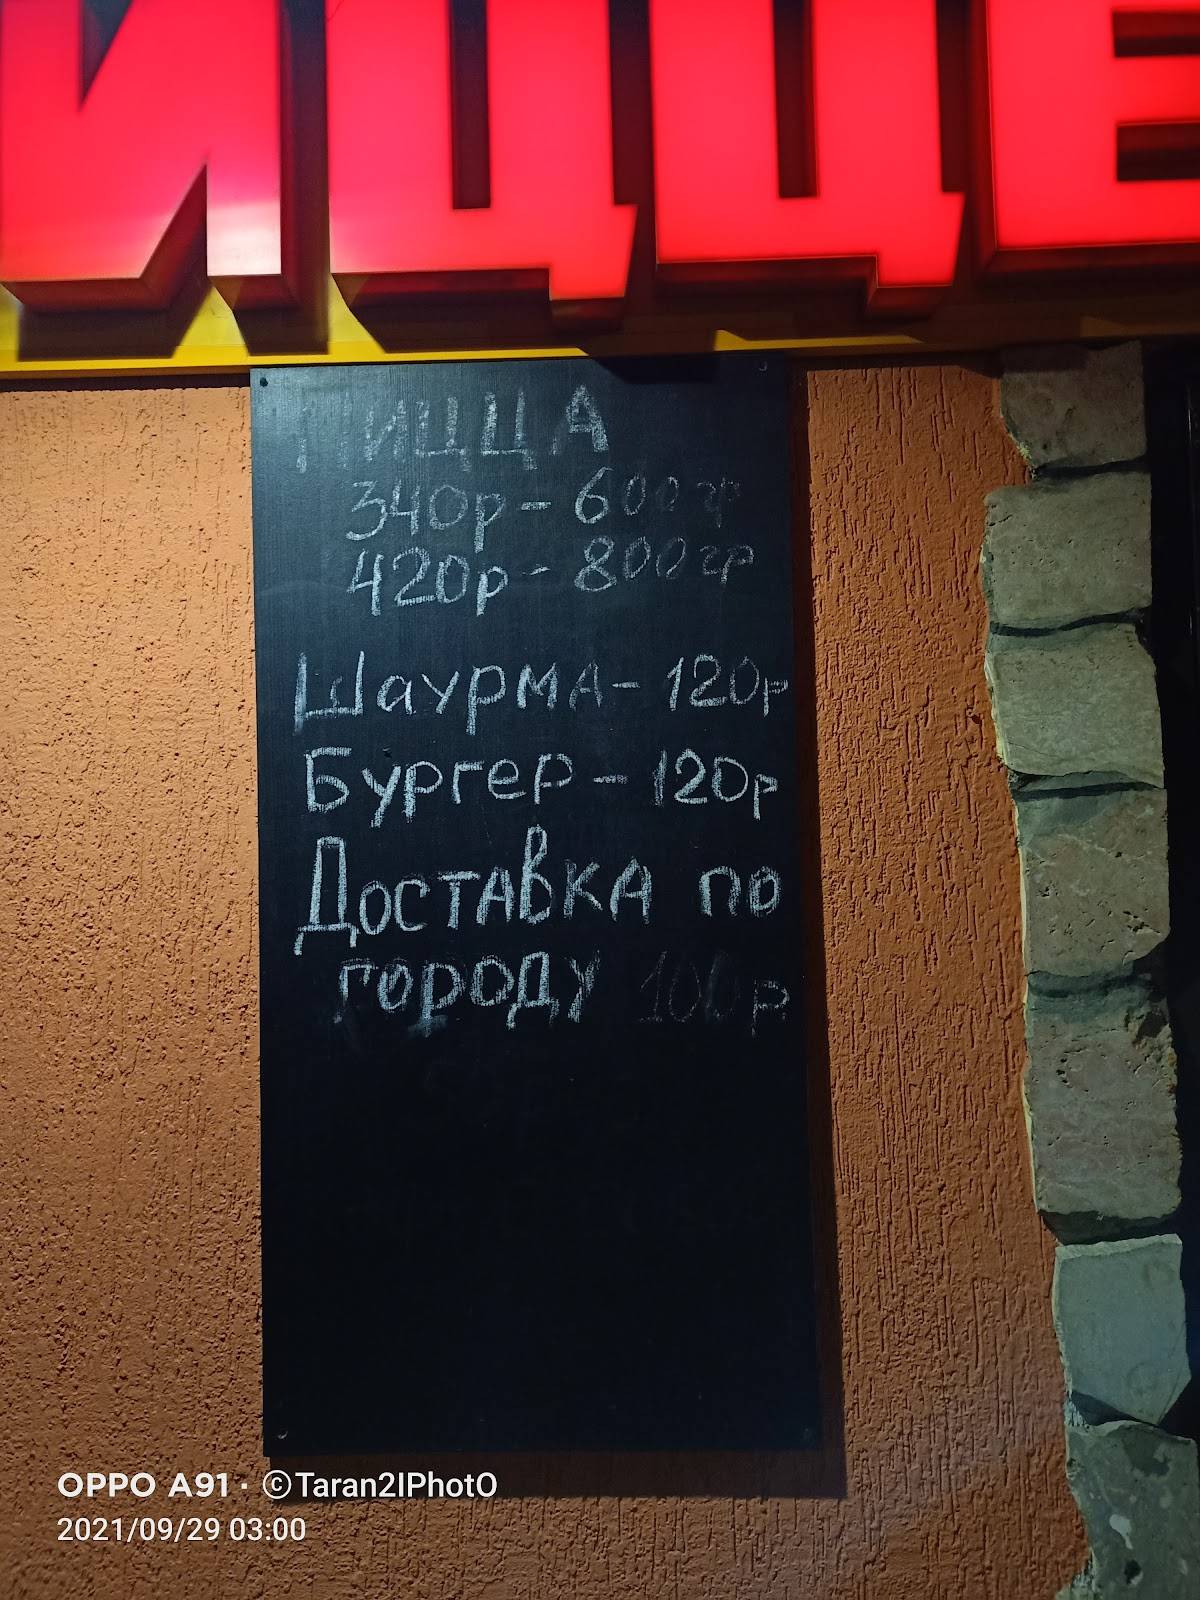 ИЦЦЕ
ПИЦЦА
340р - 600гр
420р - 800гр
Шаурма - 120р
Бургер - 120р
Доставка по
городу 100р
OPPO A91 · ©Taran2IPhotO
2021/09/29 03:00